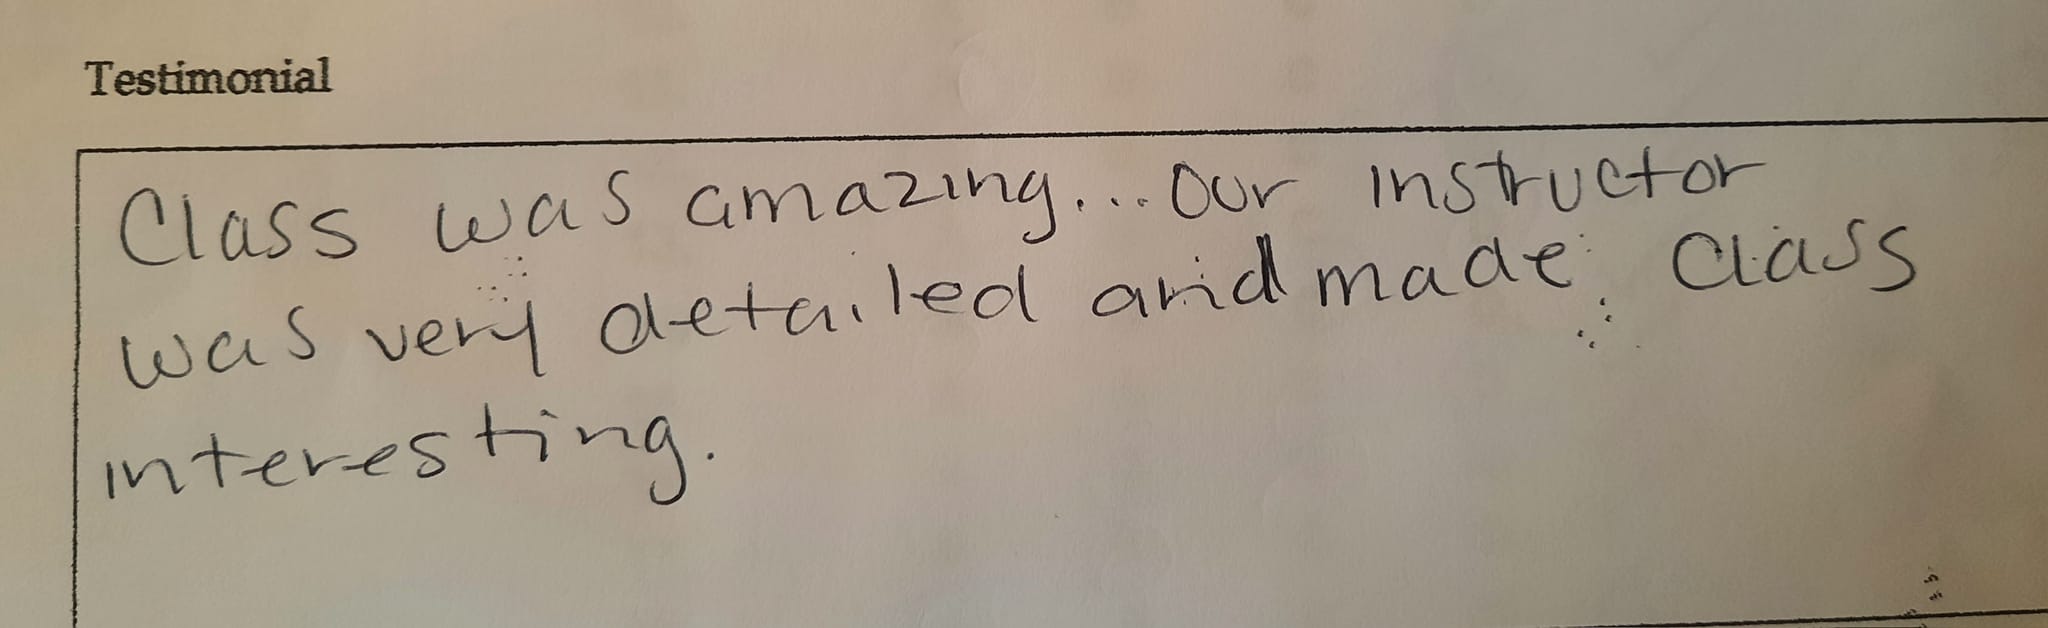 Testimonial
Class was amazing... Our instructor
was very detailed and made class
interesting.